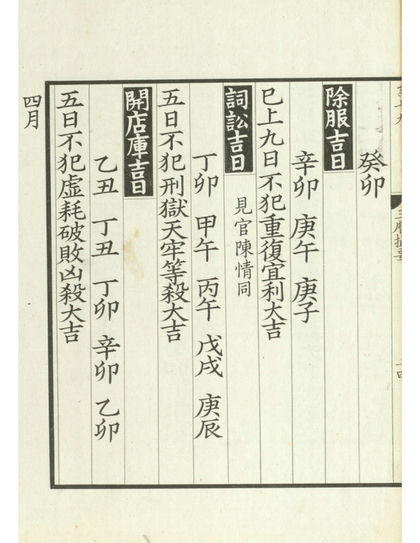 癸卯
除服吉日
辛卯 庚午 庚子
巳上九日不犯重復宜利大吉
詞訟吉日 見官陳情同
丁卯 甲午 丙午 戊戌 庚辰
五日不犯刑獄天牢等殺大吉
開店庫吉日
乙丑 丁丑 丁卯 辛卯 乙卯
五日不犯虛耗破敗凶殺大吉
四月